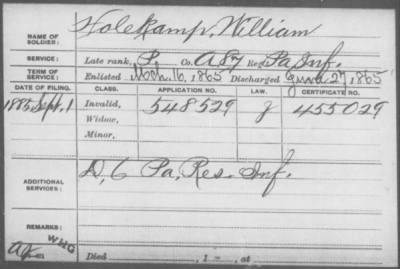 NAME OF SOLDIER: Holekamp, William
SERVICE: Late rank, P. Co. A 87 Reg't Pa Inf.
TERM OF SERVICE: Enlisted Mch. 16, 1865 Discharged June 27, 1865
DATE OF FILING. CLASS. APPLICATION NO. LAW. CERTIFICATE NO.
1885 Sept. 1 Invalid, 548529 g 455029
Widow,
Minor,
ADDITIONAL SERVICES: D, 6 Pa, Res. Inf.
REMARKS: WHG
Died , 1 , at